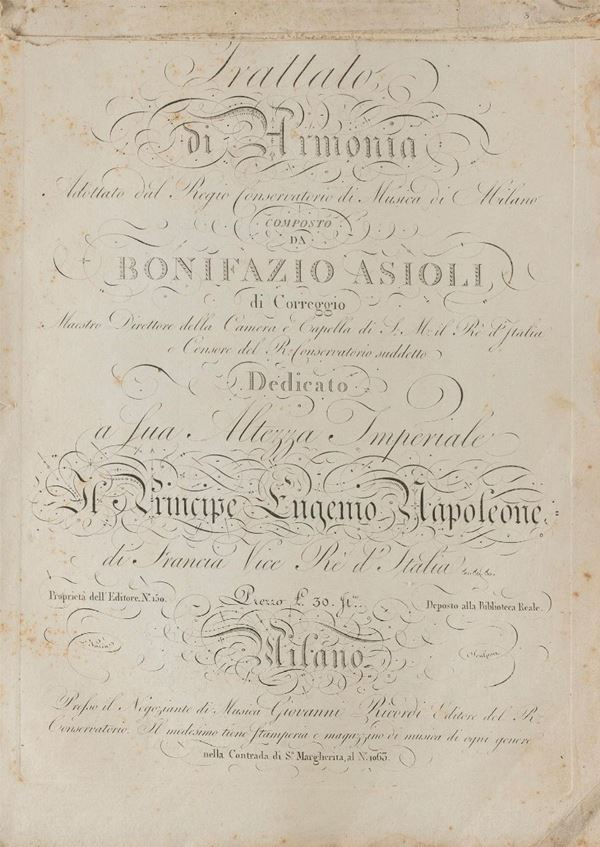 Trattato
di Armonia
Adottato dal Regio Conservatorio di Musica di Milano
COMPOSTO
DA
BONIFAZIO ASIOLI
di Correggio
Maestro Direttore della Camera e Capella di S. M. il Rè d'Italia
e Censore del R. Conservatorio suddetto
Dedicato
a Sua Altezza Imperiale
Il Principe Eugenio Napoleone
di Francia Vice Rè d'Italia
Proprietà dell'Editore. N.º 150.
Prezzo £. 30.
Deposto alla Biblioteca Reale.
Milano
Presso il Negoziante di Musica Giovanni Ricordi Editore del R.
Conservatorio. Il medesimo tiene stamperia e magazzino di musica di ogni genere
nella Contrada di S.ª Margherita, al N. 1065.